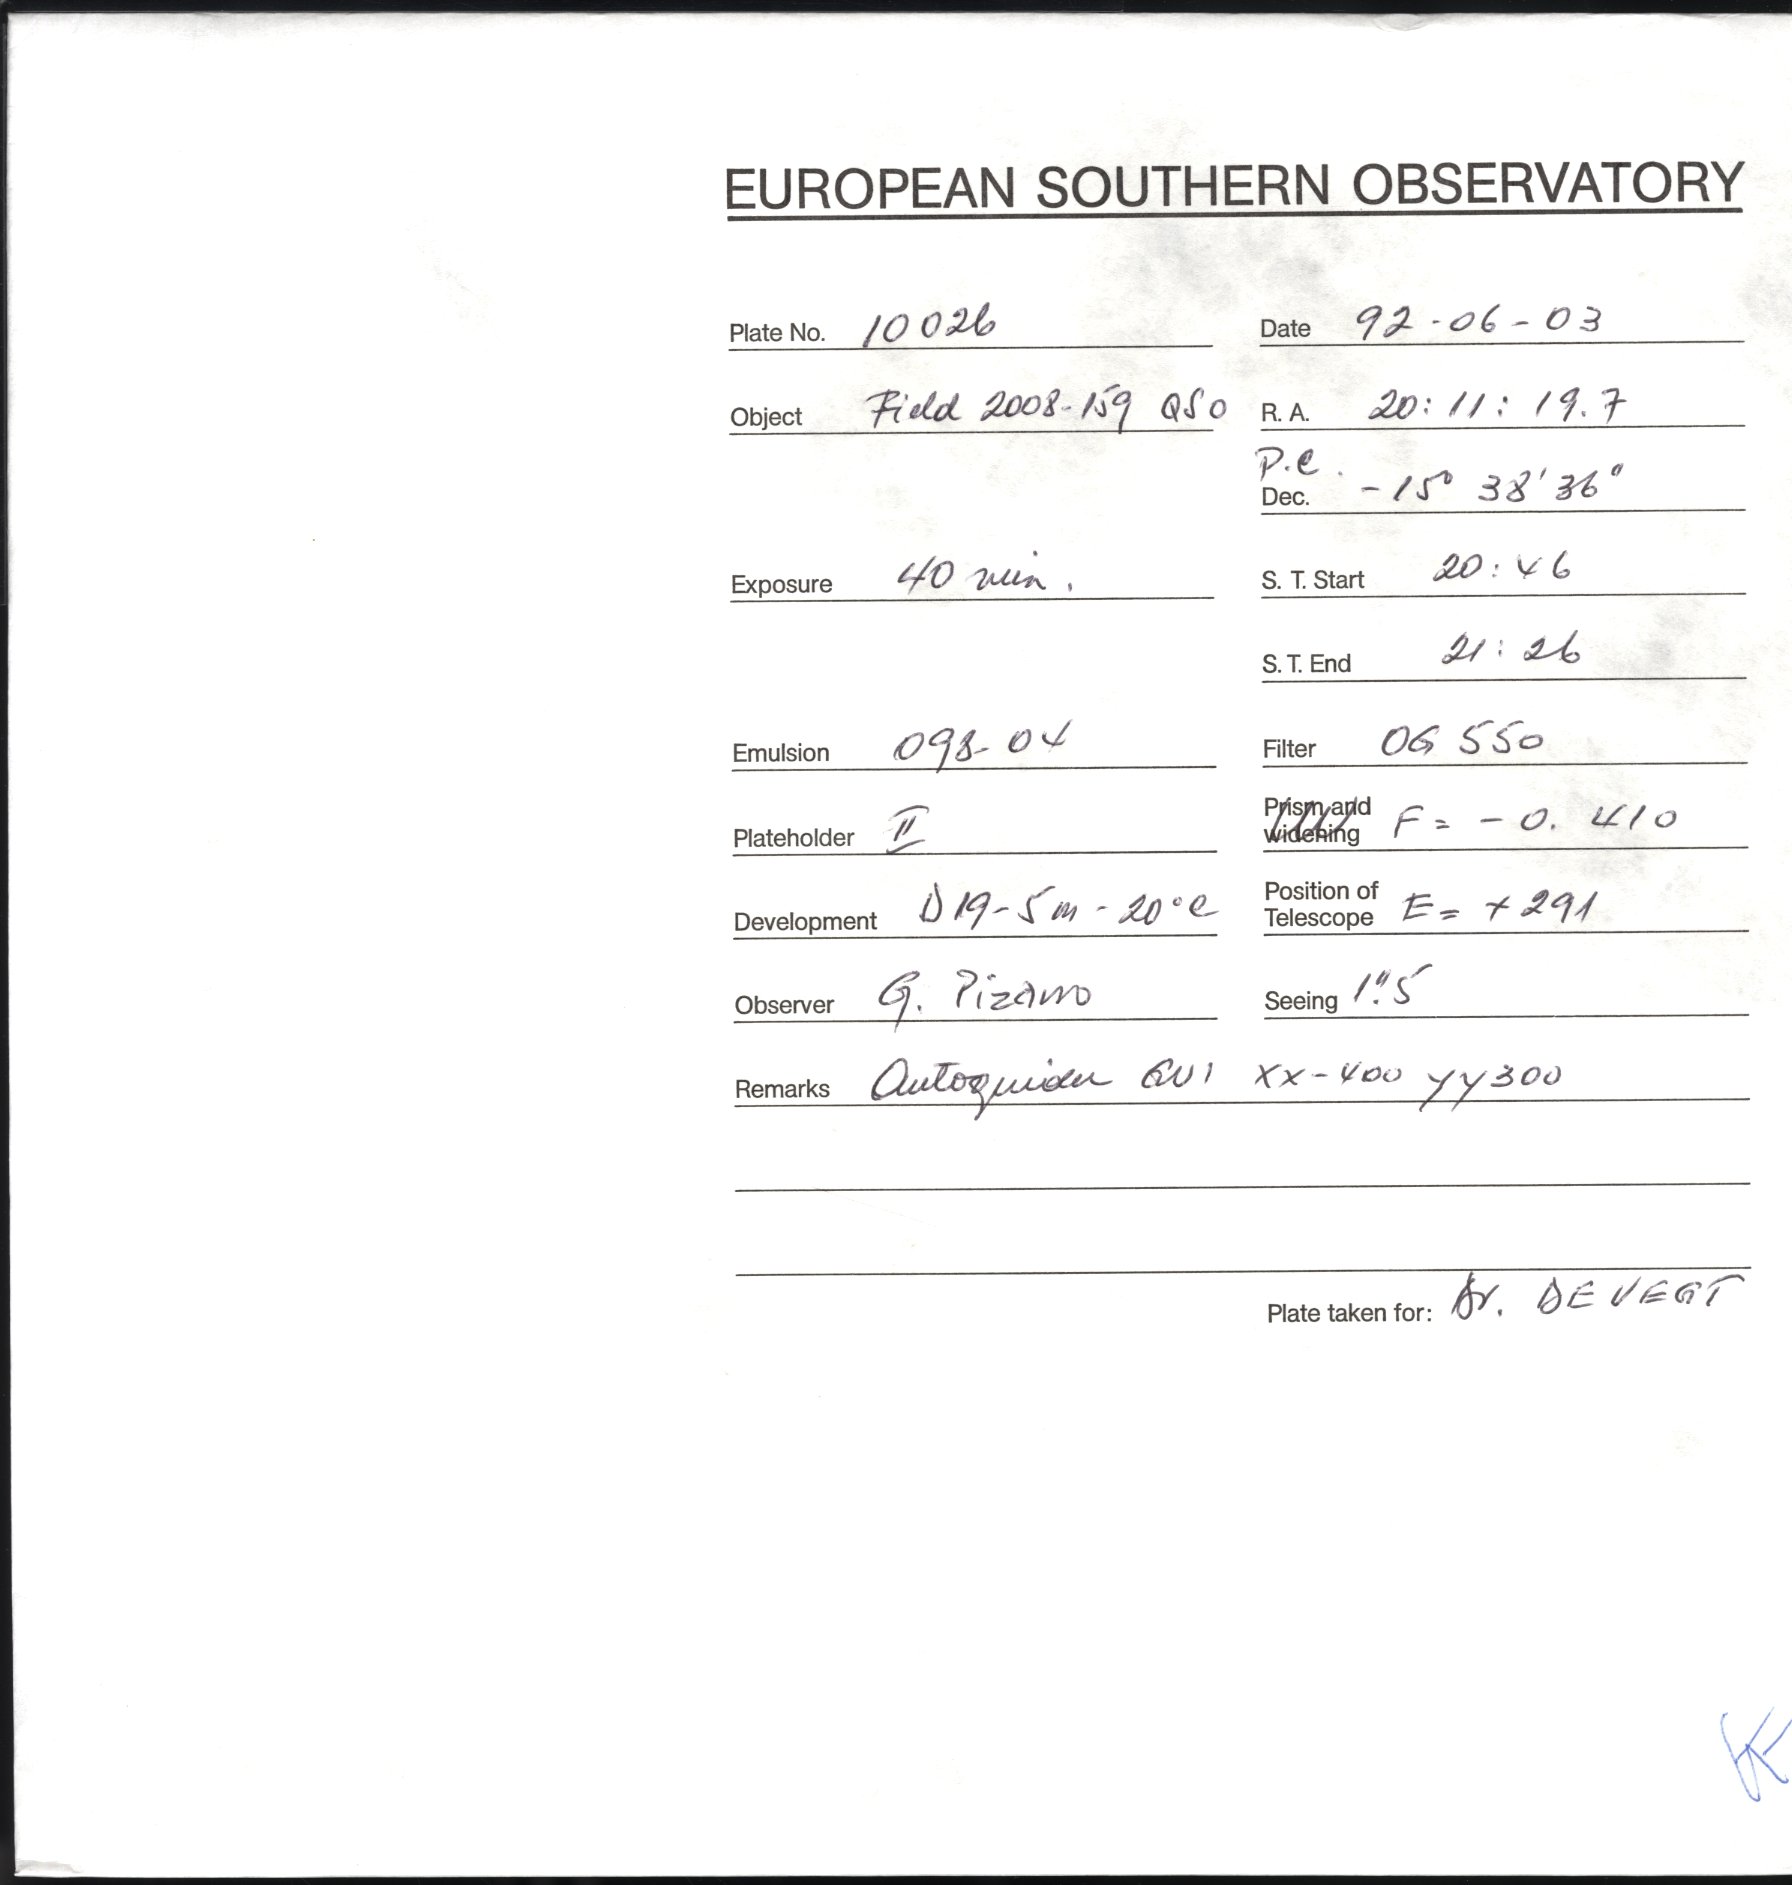 EUROPEAN SOUTHERN OBSERVATORY
Plate No. 10026 Date 92-06-03
Object Field 2008-159 QSO R. A. 20:11:19.7
P.C.
Dec. -15° 38' 36"
Exposure 40 min. S. T. Start 20:46
S. T. End 21:26
Emulsion 098-04 Filter OG 550
Plateholder II Prism and widening F = -0.410
Development D19-5m-20°C Position of Telescope E = +291
Observer G. Pizarro Seeing 1".5
Remarks Autoguider GU1 XX-400 YY300
Plate taken for: Dr. DE VEGT